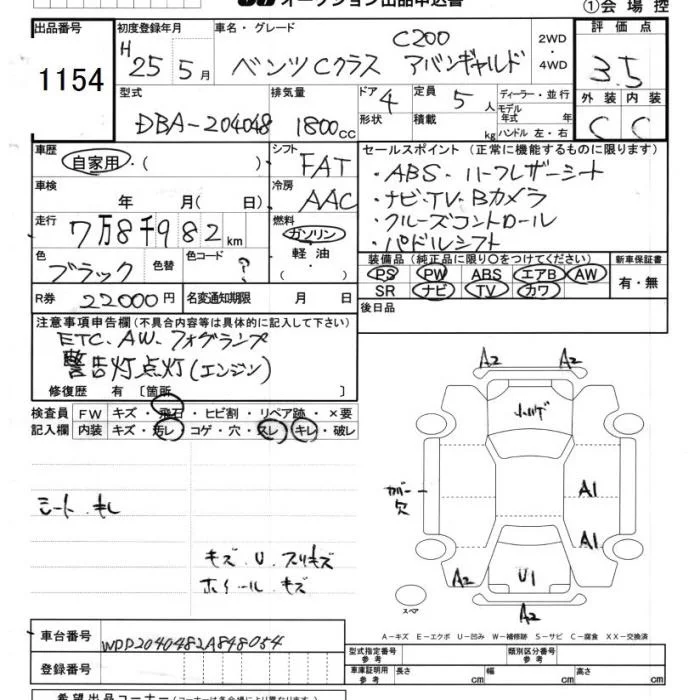 オークション出品申込書
①会場控
出品番号
1154
初度登録年月
H 25年 5月
車名・グレード
C200
ベンツCクラス アバンギャルド
2WD・4WD
評価点
3.5
外装 内装
C C
型式
DBA-204048
排気量
1800cc
ドア 4
形状
定員 5人
積載 kg
ディーラー・並行
モデル年式 年
ハンドル 左・右
車歴
自家用・( )
シフト
FAT
車検
年 月(日)
冷房
AAC
走行
7万8千982km
燃料
ガソリン
軽油
・( )
色
ブラック
色替
色コード
?
R券 22000円
名変通知期限 月 日
セールスポイント(正常に機能するものに限ります)
・ABS・ハーフレザーシート
・ナビ・TV・Bカメラ
・クルーズコントロール
・パドルシフト
装備品(純正品に限り○をつけてください)
PS PW ABS エアB AW
SR ナビ TV カワ
新車保証書
有・無
後日品
注意事項申告欄(不具合内容等は具体的に記入して下さい)
ETC、AW、フォグランプ
警告灯点灯(エンジン)
修復歴 有〔箇所 〕
検査員記入欄
FW キズ・飛石・ヒビ割・リペア跡・×要
内装 キズ・汚レ・コゲ・穴・スレ・キレ・破レ
シート、キレ
キズ、U、スリキズ
ホイール、キズ
A2 A2
カバー欠
A1
A1
A2
U1
A2
スペア
A-キズ E-エクボ U-凹み W-補修跡 S-サビ C-腐食 XX-交換済
車台番号
WDD2040482A848054
登録番号
型式指定番号 参考
類別区分番号 参考
車庫証明用 参考
長さ cm 幅 cm 高さ cm
希望出品コーナー(コーナーは各会場により異なります)